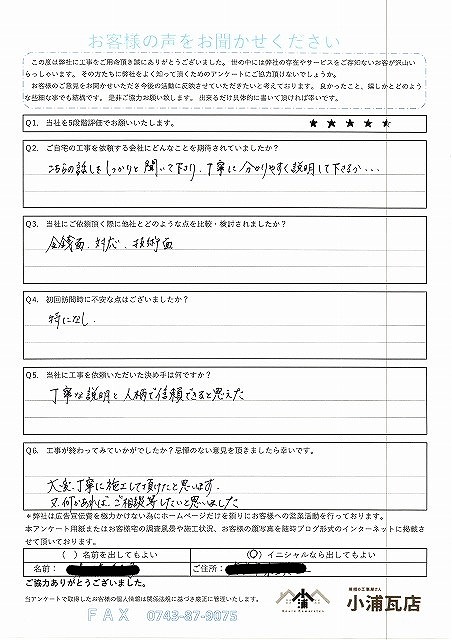 お客様の声をお聞かせください
この度は弊社に工事をご用命頂き誠にありがとうございました。世の中には弊社の存在やサービスをご存知ないお客が沢山い
らっしゃいます。その方たちに弊社をよく知って頂くためのアンケートにご協力頂けないでしょうか。
お客様のご意見をお聞かせいただき今後の活動に反映させていただきたいと考えております。良かったこと、嬉しかとどのよう
な些細な事でも結構です。是非ご協力お願い致します。出来るだけ具体的に書いて頂ければ幸いです。
Q1. 当社を5段階評価でお願いいたします。 ★ ★ ★ ★ ★
Q2. ご自宅の工事を依頼する会社にどんなことを期待されていましたか?
こちらの話しをしっかりと聞いて下さり、丁寧に分かりやすく説明して下さるか...
Q3. 当社にご依頼頂く際に他社とどのような点を比較・検討されましたか?
金銭面、対応、技術面
Q4. 初回訪問時に不安な点はございましたか?
特になし.
Q5. 当社に工事を依頼いただいた決め手は何ですか?
丁寧な説明と人柄で信頼できると思えた
Q6. 工事が終わってみていかがでしたか?忌憚のない意見を頂きましたら幸いです。
大変、丁寧に施工して頂けたと思います。
又、何かあれば、ご相談等したいと思いました
*弊社は広告宣伝費を極力かけない為にホームページだけを頼りにお客様への営業活動を行っております。
本アンケート用紙またはお客様宅の調査風景や施工状況、お客様の顔写真を随時ブログ形式のインターネットに掲載さ
せて頂いております。
( ) 名前を出してもよい (○) イニシャルなら出してもよい
名前: ご住所:
ご協力ありがとうございました。
当アンケートで取得したお客様の個人情報は関係法規に基づき厳正に管理いたします。
小浦瓦店
FAX 0743-87-9075